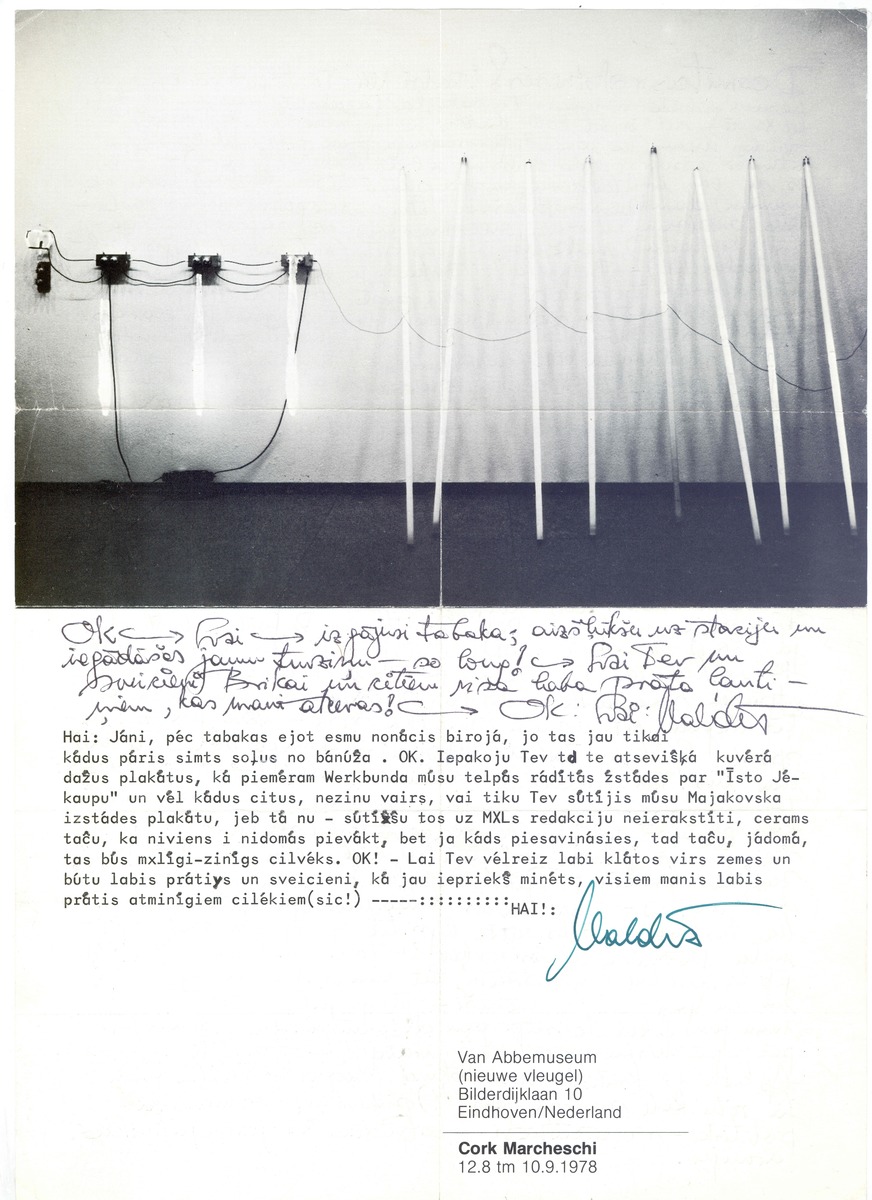 OK → Lai → izgājusi tabaka; aizšļūkšu uz staciju un
iegādāšos jaunu — so long! → Lai Tev un
sveicieni Brikai un citiem visā labā prātā ļauti-
ņiem, kas mani atceras! → OK: Lai: Valdis
Hai: Jáni, péc tabakas ejot esmu nonácis birojá, jo tas jau tikai
kádus páris simts soļus no bánúža . OK. Iepakoju Tev td te atsevišķá kuvérá
dažus plakátus, ká pieméram Werkbunda músu telpás rádítás žstádes par "Īsto Jé-
kaupu" un vél kádus citus, nezinu vairs, vai tiku Tev sútíjis músu Majakovska
izstádes plakátu, jeb tá nu - sútíšu tos uz MXLs redakciju neierakstíti, cerams
taču, ka niviens i nidomás pievákt, bet ja káds piesavinásies, tad taču, jádomá,
tas bús mxlígi-zinígs cilvéks. OK! - Lai Tev vélreiz labi klátos virs zemes un
bútu labis prátiys un sveicieni, ká jau iepriekš minéts, visiem manis labis
prátis atminígiem cilékiem(sic!) -----::::::::::HAI!:
Valdis
Van Abbemuseum
(nieuwe vleugel)
Bilderdijklaan 10
Eindhoven/Nederland
Cork Marcheschi
12.8 tm 10.9.1978